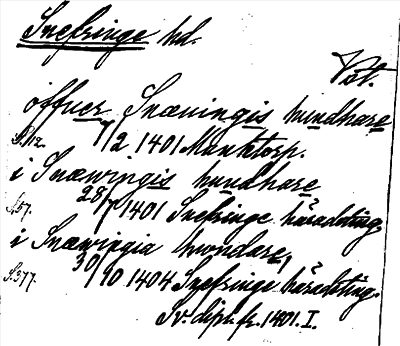 Snefringe hd.
Väst.
öffuer Snæuingis hundhare
S. 12. 7/2 1401 Munktorp.
i Snæwringis hundhare
S. 57. 28/7 1401 Snefringe häradsting.
i Snæwringia hwondare,
S. 377. 30/10 1404 Snefringe häradsting.
Sv. dipl. fr. 1401. I.